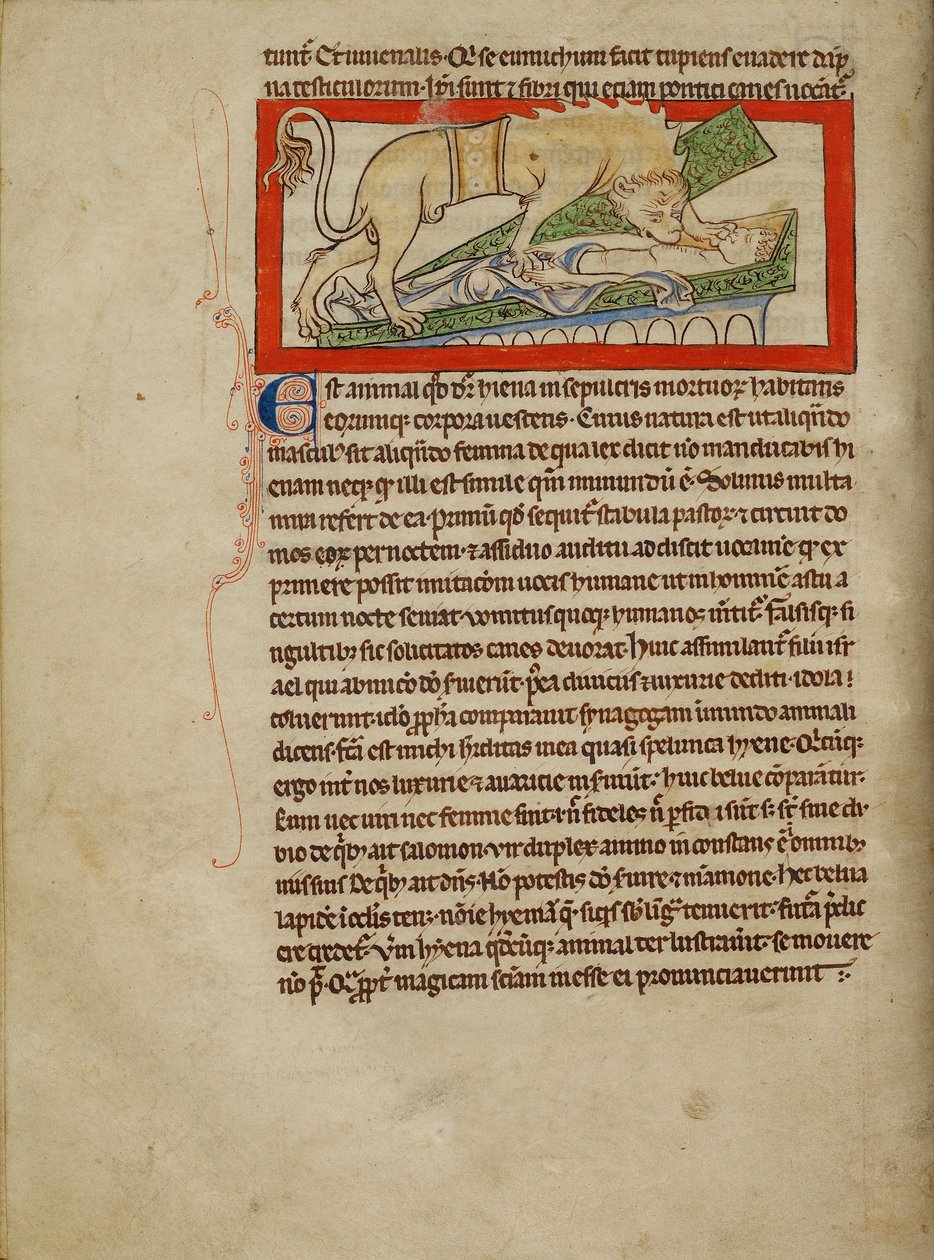 tunt᷑. Et iuuenalis. Q̅i se eunuchum facit cupiens euadere dāp
na testiculorum. Ip̄i sunt ⁊ fibri qui eciam pontici canes uocāt᷑.
Est animal qd̄ dr̄ hiena in sepulcris mortuoꝝ habitans
eorumqꝫ corpora uescens. Cuius natura est ut aliqn̄do
masculꝰ sit aliqn̄do femina de qua lex dicit nō manducabis hi
enam neqꝫ qꝫ illi est simile qm̄ inmundū ē. Solinus multa
mira refert de ea. Primū qd̄ sequit᷑ stabula pastoꝝ ⁊ circuit do
mos eoꝝ per noctem. ⁊ assiduo auditu addiscit uocamē qꝫ ex
primere possit imitacōm uocis humane ut in hominē astu a
certum nocte seuiat. vomitus quoqꝫ humanos mētit᷑. falsisqꝫ si
ngultibꝫ sic solicitatos canes deuorat. huic assimilant᷑ filii isr
ael qui ab inicō dō s̓uierūt. p̄ea diuiciis ⁊ luxurie dediti. idola
coluerunt. iđo ꝓph̄a comparauit synagogam īmundo animali
dicens. fc̄a est michi h̓editas mea quasi spelunca hyene. Q̅icūqꝫ
ergo int̓ nos luxurie ⁊ auaricie ins̓uiūt. huic belue cōparātur.
Cum nec uiri nec femine sint. i. n̄ fideles n̄ ꝑfidi sūt s̓ st̄ sine du
bio de qⁱbꝫ ait salomon. vir duplex animo in constans ē ī omnibꝫ
uiis suis. De qⁱbꝫ ait dn̄s. Nō potestis dō s̓uire. ⁊ māmone. hec belua
lapidē ī oc̄lis tenꝫ. nōīe hyeniā qᷓ. siqⁱs sb̓ lingᷓ tenuerit. fut̓a p̄dic
ere credet᷑. Vm̄ hyena qd̄cūqꝫ animal ter lustrau̓it. se mouere
nō p̄t. Q̅i ꝓpt̓ magicam sciam inesse ei pronunciauerunt